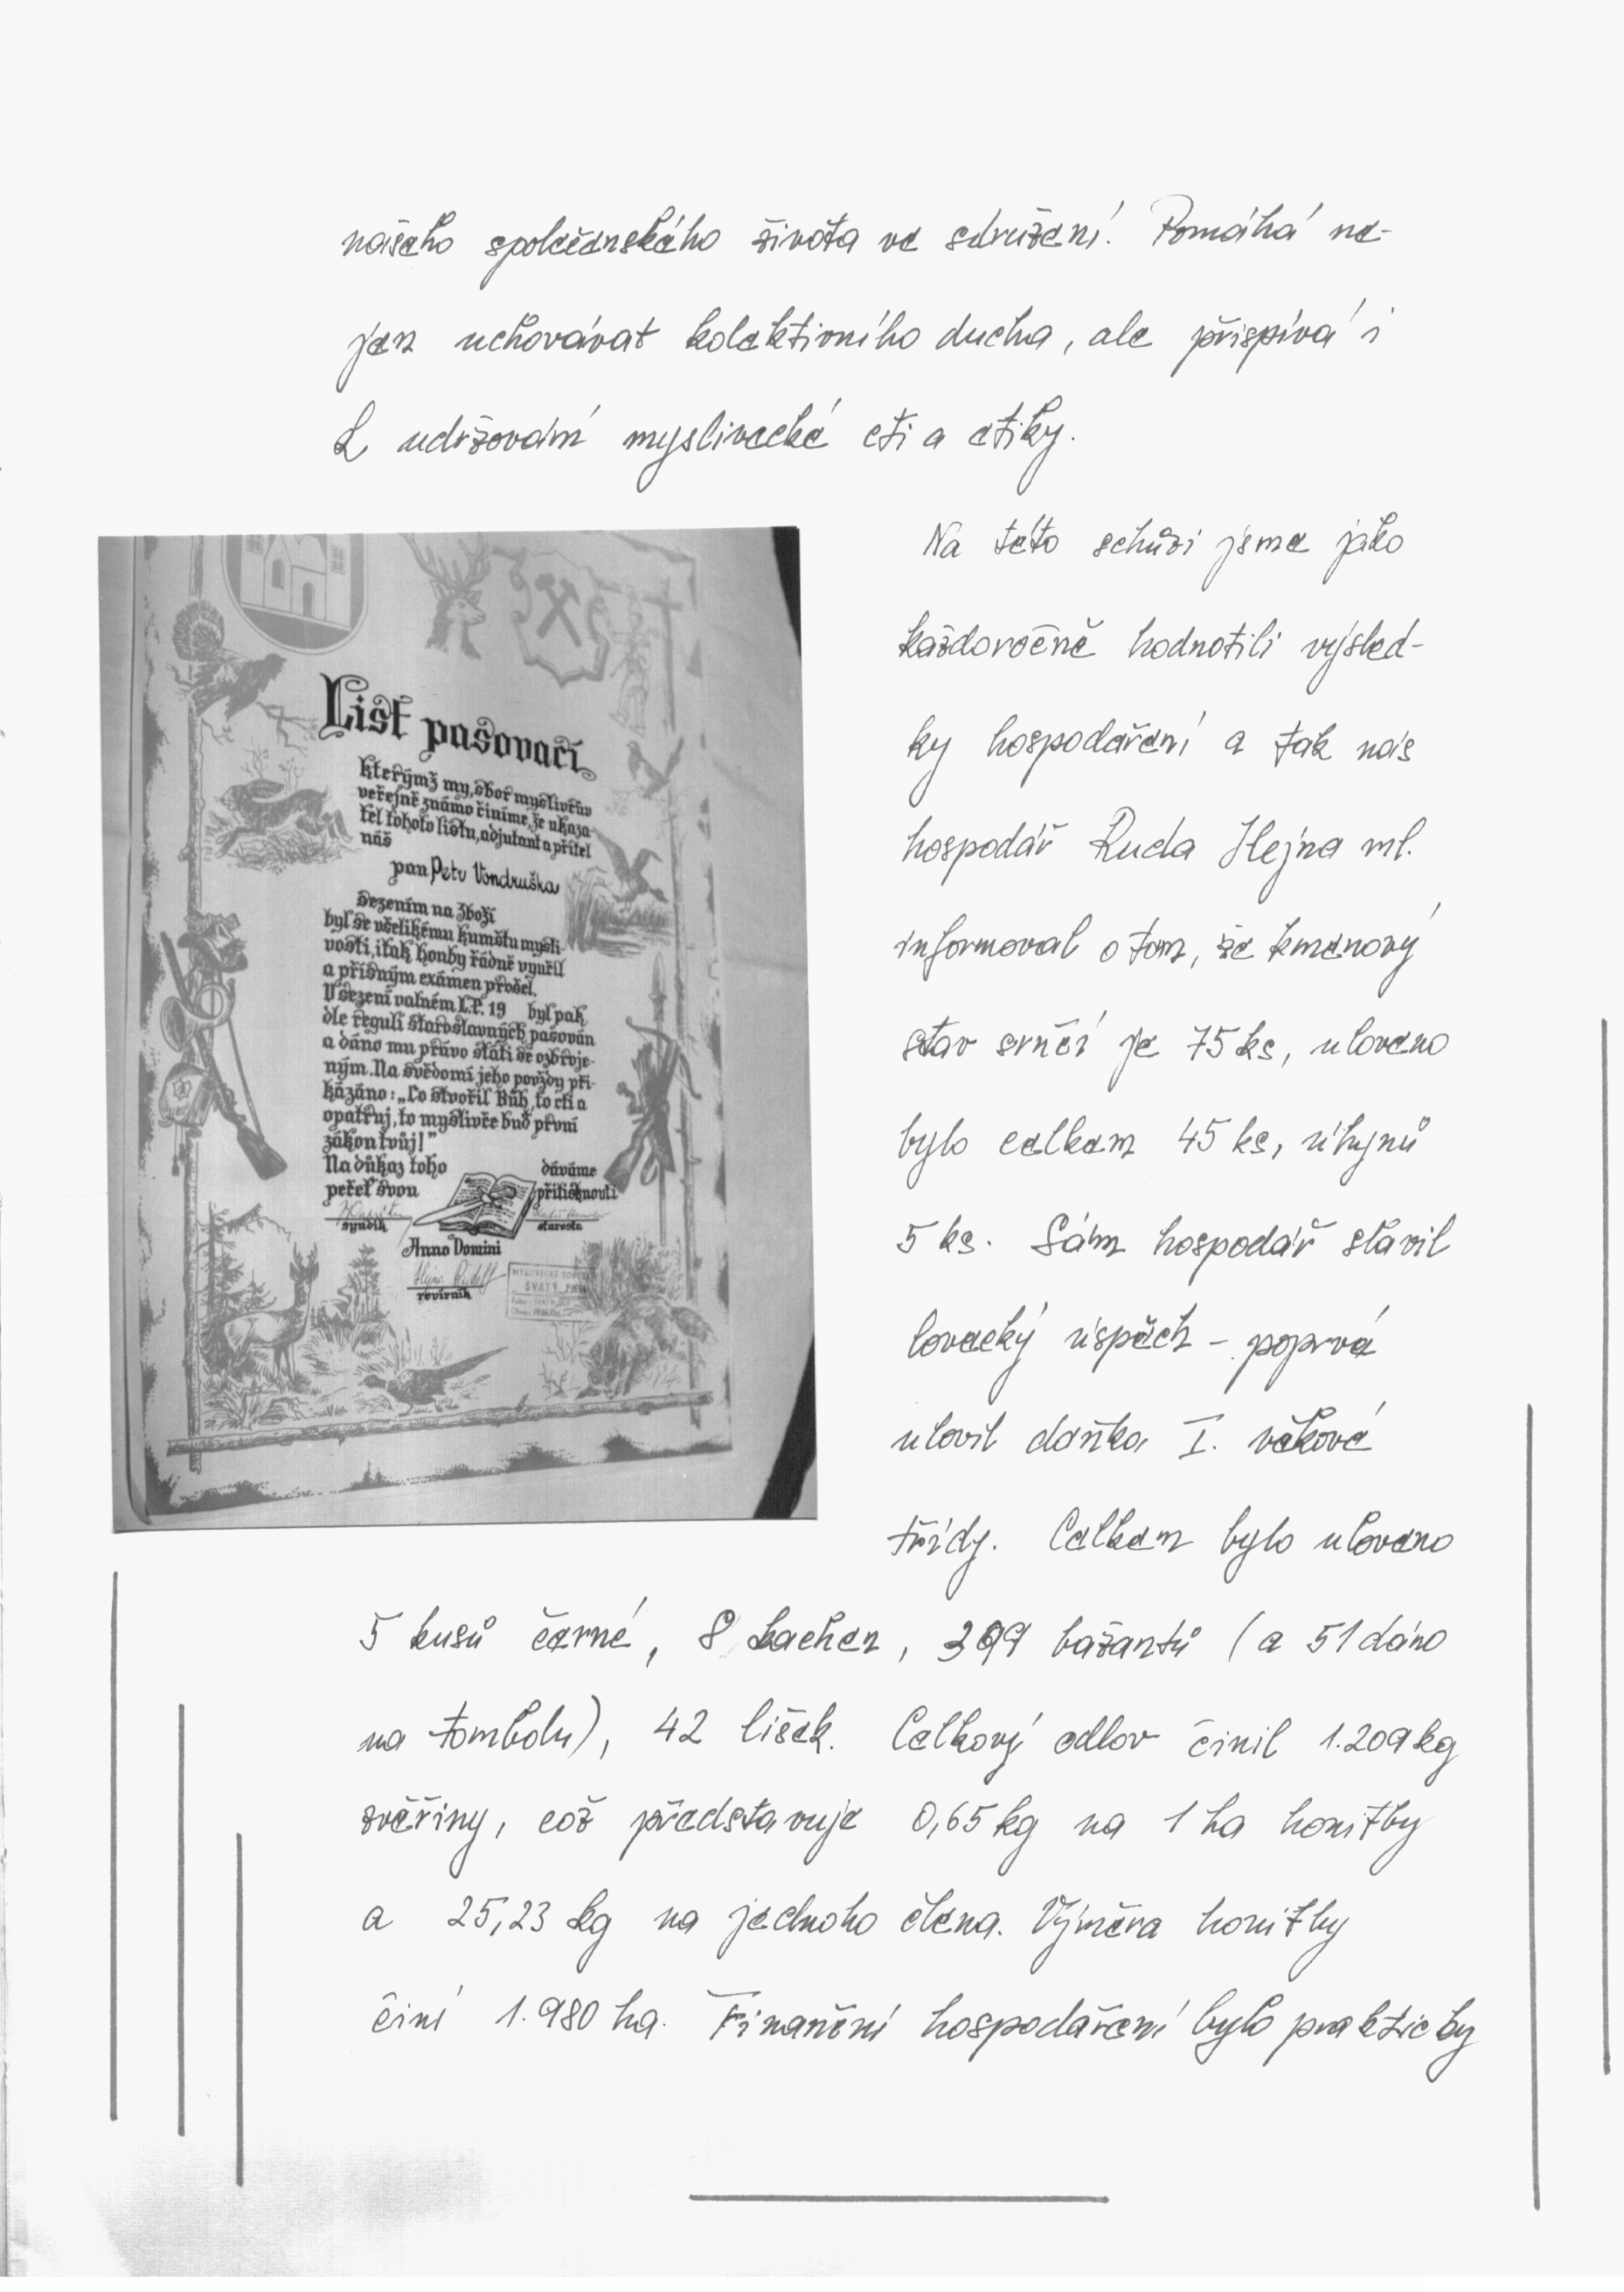 našeho společenského života ve sdružení. Pomáhá ne-
jen uchovávat kolektivního ducha, ale přispívá i
k udržování myslivecké cti a etiky.
List pasovací
kterýmž my, sbor myslivcův
veřejně známo činíme, že ukaza-
tel tohoto listu, adjutant a přítel
náš
pan Petr Vondruška
sezením na Zboží
byl se všelikému kumštu mysli-
vosti, i tak honby řádně vyučil
a přísným exámen prošel.
V sezení valném L.P. 19 byl pak
dle regulí staroslavných pasován
a dáno mu právo státi se ozbroje-
ným. Na svědomí jeho povždy při-
kázáno: „Co stvořil Bůh, to cti a
opatruj, to myslivče buď první
zákon tvůj!"
Na důkaz toho dáváme
pečeť svou přitisknouti
syndik starosta
Anno Domini
Hejna Rudolf
revírník
SVATÝ
Na této schůzi jsme jako
každoročně hodnotili výsled-
ky hospodaření a tak nás
hospodář Ruda Hejna ml.
informoval o tom, že kmenový
stav srnčí je 75 ks, uloveno
bylo celkem 45 ks, úhynů
5 ks. Sám hospodář slavil
lovecký úspěch - poprvé
ulovil daňka I. věkové
třídy. Celkem bylo uloveno
5 kusů černé, 8 kachen, 399 bažantů (a 51 dáno
na tombolu), 42 lišek. Celkový odlov činil 1.209 kg
zvěřiny, což představuje 0,65 kg na 1 ha honitby
a 25,23 kg na jednoho člena. Výměra honitby
činí 1.980 ha. Finanční hospodaření bylo prakticky